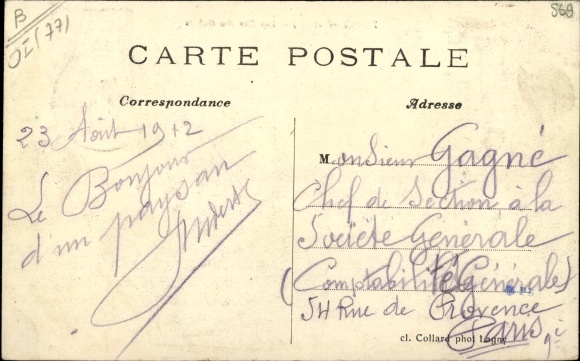 B
569
CARTE POSTALE
Correspondance
Adresse
23 Août 1912
Le Bonjour
d'un paysan
Monsieur Gagné
Chef de Section à la
Société Générale
(Comptabilité Générale)
54 Rue de Provence
Paris
cl. Collard phot Lagny